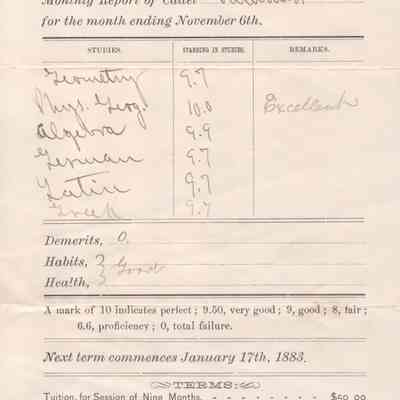 Monthly Report of Cadet
for the month ending November 6th.
STUDIES. STANDING IN STUDIES. REMARKS.
Geometry 9.7
Phys. Geog. 10.0 Excellent
Algebra 9.9
German 9.7
Latin 9.7
Greek 9.7
Demerits, 0.
Habits, } Good
Health, }
A mark of 10 indicates perfect; 9.50, very good; 9, good; 8, fair;
6.6, proficiency; 0, total failure.
Next term commences January 17th, 1883.
TERMS:
Tuition, for Session of Nine Months, - - - - - - - $50 00